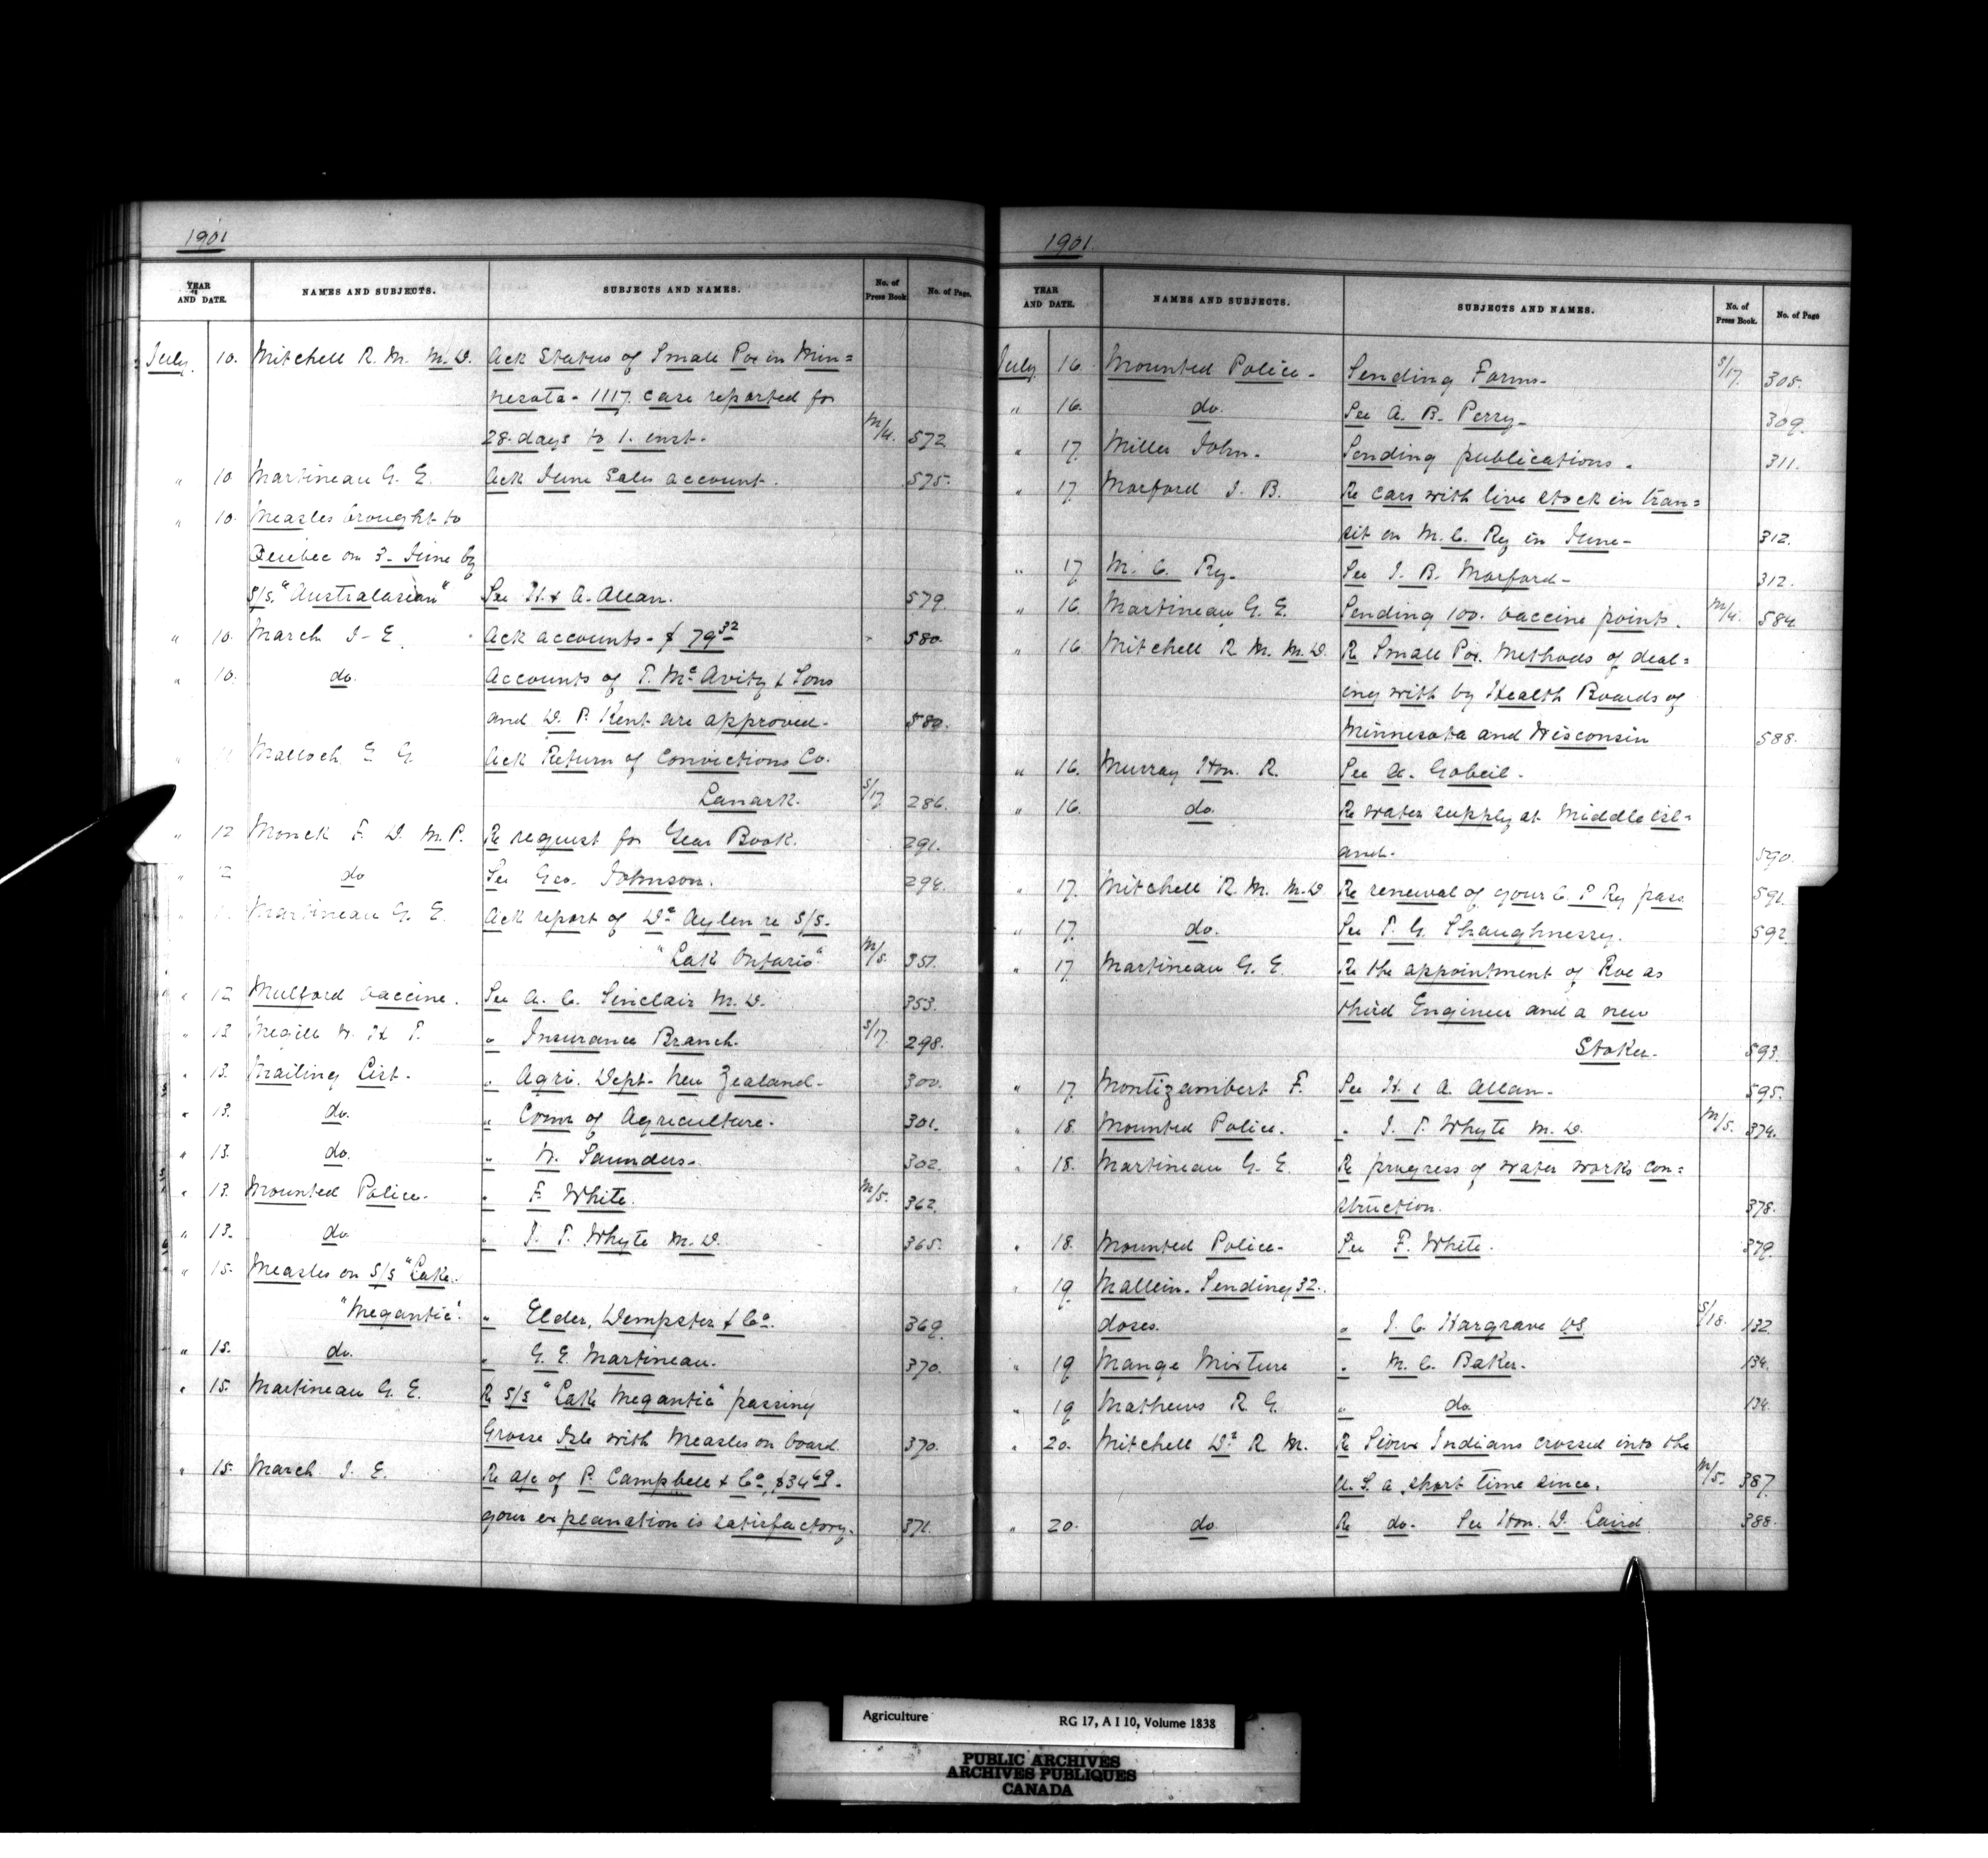 1901
YEAR AND DATE. NAMES AND SUBJECTS. SUBJECTS AND NAMES. No. of Press Book No. of Page.
July 10. Mitchell R. M. M.D. Ack Status of Small Pox in Min=
nesota - 1117. case reported for
28. days to 1. inst. M/4. 572
" 10. Martineau G. E. Ack June Sales account. 575.
" 10. Measles brought to
Quebec on 3- June by
S/s. "Australasian" See H. & A. Allan. 579.
" 10. March J- E. Ack accounts - $ 79 32 580.
" 10. do. Accounts of T. Mc Avity & Sons
and D. P. Kent are approved. 580.
Malloch E G Ack Return of Convictions Co.
Lanark. S/17. 286.
" 12 Monck F. D. M.P. Re request for Year Book. 291.
" do See Geo. Johnson. 294.
" Martineau G. E. Ack report of Dr Aylen re S/S.
"Lake Ontario". M/5. 351.
" 12 Mulford Vaccine. See A. C. Sinclair M.D. 353.
" 13 Megill W. H T. " Insurance Branch. S/17. 298.
" 13. Mailing List. " Agri. Dept. New Zealand. 300.
" 13. do. " Comr of Agriculture. 301.
" 13. do. " W. Saunders. 302.
" 13. Mounted Police. " F. White. M/5. 362.
" 13. do " J. T. Whyte M.D. 365.
" 15. Measles on S/S "Lake.
"Megantic". " Elder, Dempster & Co. 369.
" 15. do. " G. E. Martineau. 370.
" 15. Martineau G. E. Re S/S "Lake Megantic" passing
Grosse Isle with Measles on board. 370.
" 15. March J. E. Re a/c of P. Campbell & Co, $34 69.
your explanation is satisfactory. 371.
1901.
YEAR AND DATE. NAMES AND SUBJECTS. SUBJECTS AND NAMES. No. of Press Book. No. of Page
July 16. Mounted Police - Sending Forms - S/17. 305.
" 16. do. See A. B. Perry - 309.
" 17. Miller John. Sending publications. 311.
" 17. Morford J. B. Re cars with live stock in tran=
sit on M. C. Ry in June - 312.
" 17 M. C. Ry. See J. B. Morford - 312.
" 16. Martineau G. E. Sending 100. vaccine points. M/4. 584.
" 16. Mitchell R. M. M.D. Re Small Pox. Methods of deal=
ing with by Health Boards of
Minnesota and Wisconsin 588.
" 16. Murray Hon. R. See A. Gobeil.
" 16. do. Re water supply at Middle isl=
and. 590.
" 17. Mitchell R. M. M.D Re renewal of your C. P Ry pass 591.
" 17. do. See T. G. Shaughnessy. 592.
" 17. Martineau G. E. Re the appointment of Roe as
third Engineer and a new
Stoker. 593.
" 17. Montizambert F. See H. & A. Allan. 595.
" 18. Mounted Police. " J. T. Whyte M.D. M/5. 374.
" 18. Martineau G. E. Re progress of water works con=
struction. 378.
" 18. Mounted Police. See F. White. 379.
" 19 Mallein. Sending 32.
doses. " J. C. Hargrave VS. S/18. 132.
" 19 Mange Mixture " M. C. Baker. 134.
" 19 Mathews R. G. " do. 134.
" 20. Mitchell Dr. R M. Re Sioux Indians crossed into the
U.S. a short time since. M/5. 387.
" 20. do. Re do. See Hon. D. Laird 388.
Agriculture RG 17, A I 10, Volume 1838
PUBLIC ARCHIVES
ARCHIVES PUBLIQUES
CANADA